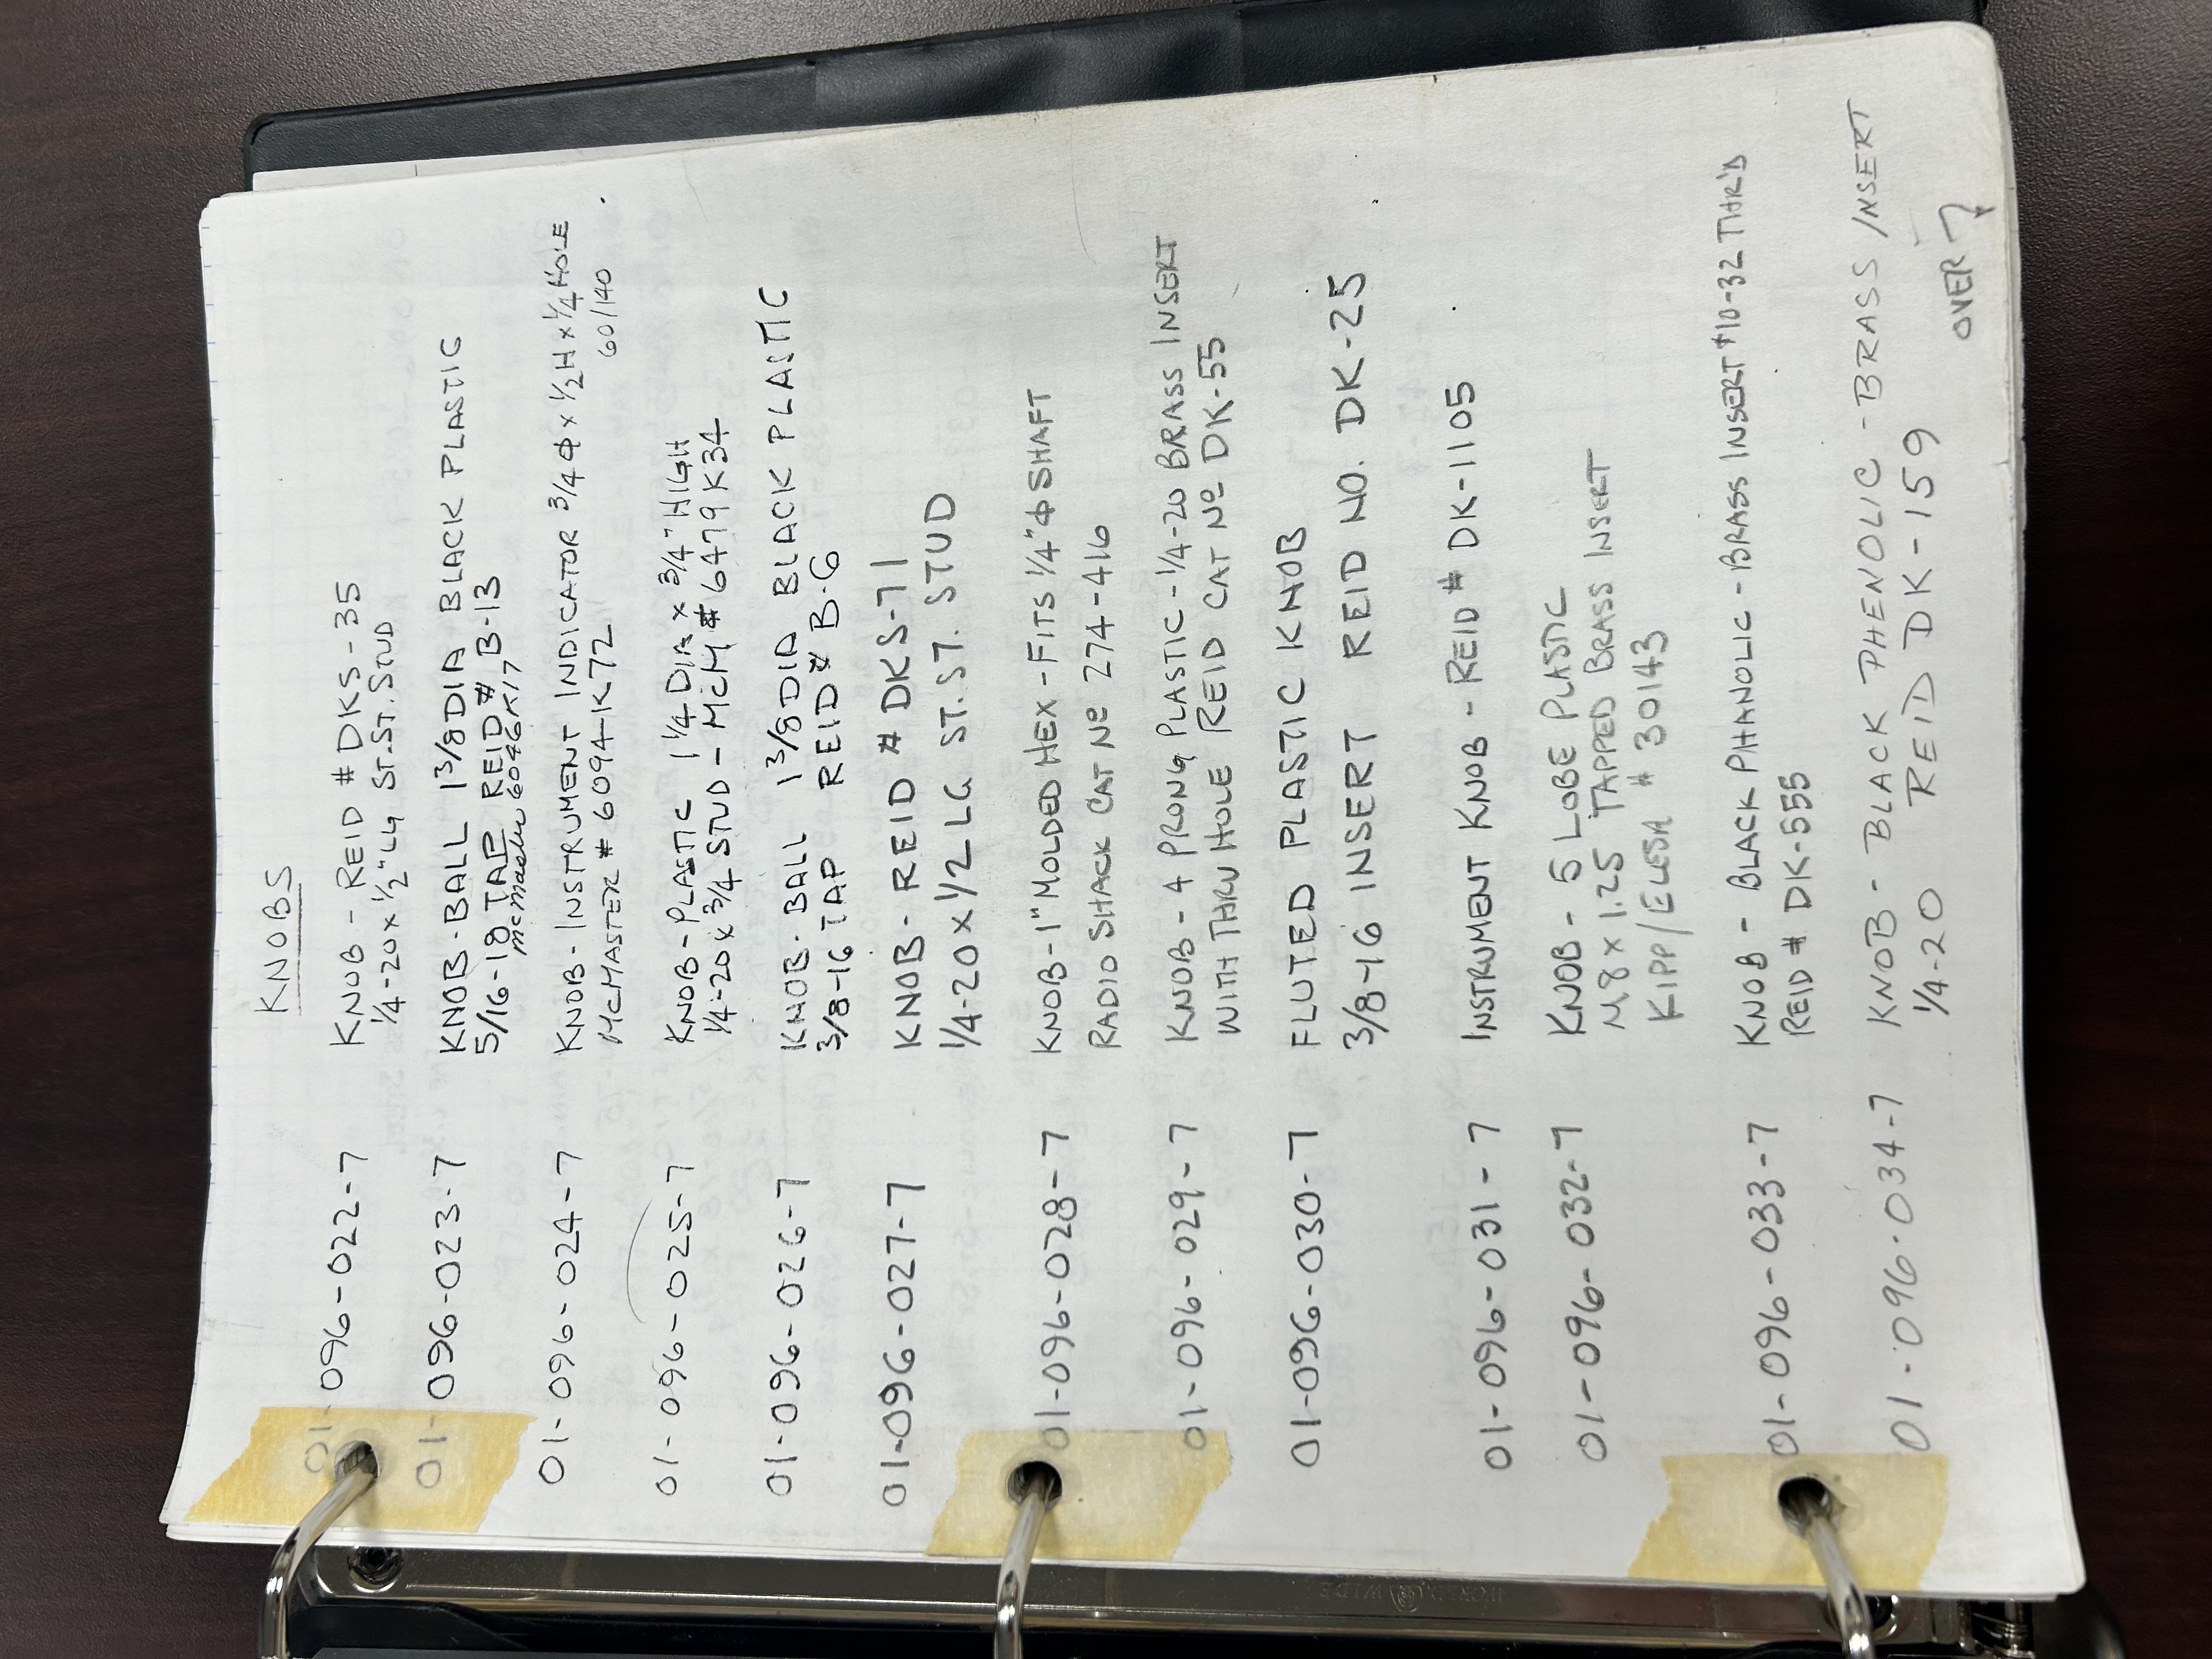 KNOBS
01-096-022-7 KNOB - REID # DKS-35
1/4-20 x 1/2" LG ST.ST. STUD
01-096-023-7 KNOB-BALL 1 3/8 DIA BLACK PLASTIC
5/16-18 TAP REID # B-13
McMaster 6046K17
01-096-024-7 KNOB-INSTRUMENT INDICATOR 3/4 ϕ x 1/2 H x 1/4 HOLE
MCMASTER # 6094-K72 60/140
01-096-025-7 KNOB-PLASTIC 1 1/4 DIA x 3/4" HIGH
1/4-20 x 3/4 STUD - McM # 6479K34
01-096-026-7 KNOB-BALL 1 3/8 DIA BLACK PLASTIC
3/8-16 TAP REID # B-6
01-096-027-7 KNOB-REID # DKS-71
1/4-20 x 1/2 LG ST.ST. STUD
01-096-028-7 KNOB-1" MOLDED HEX-FITS 1/4" ϕ SHAFT
RADIO SHACK CAT Nº 274-416
01-096-029-7 KNOB-4 PRONG PLASTIC-1/4-20 BRASS INSERT
WITH THRU HOLE REID CAT Nº DK-55
01-096-030-7 FLUTED PLASTIC KNOB
3/8-16 INSERT REID NO. DK-25
01-096-031-7 INSTRUMENT KNOB-REID # DK-1105
01-096-032-7 KNOB-5 LOBE PLASTIC
M8 x 1.25 TAPPED BRASS INSERT
KIPP/ELESA # 30143
01-096-033-7 KNOB-BLACK PHANOLIC-BRASS INSERT #10-32 THR'D
REID # DK-555
01-096-034-7 KNOB-BLACK PHENOLIC-BRASS INSERT
1/4-20 REID DK-159
OVER